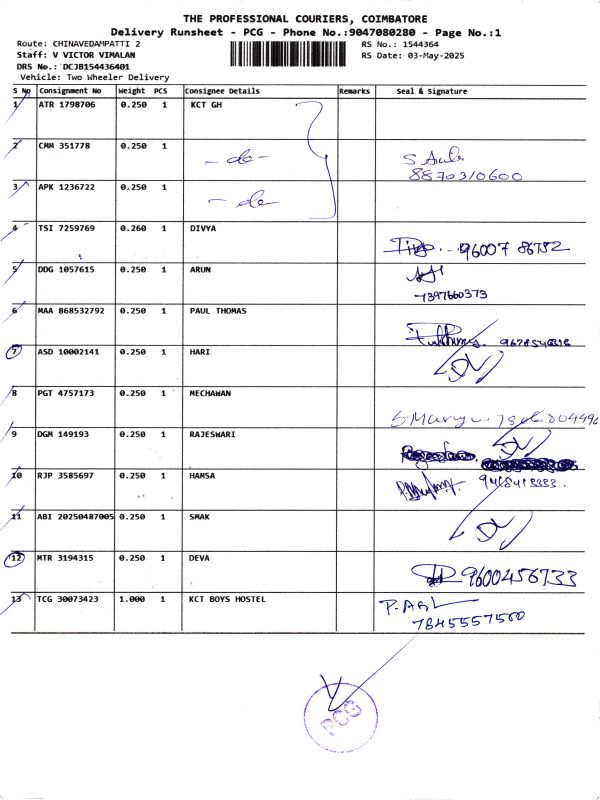 THE PROFESSIONAL COURIERS, COIMBATORE
Delivery Runsheet - PCG - Phone No.:9047080280 - Page No.:1
Route: CHINAVEDAMPATTI 2 RS No.: 1544364
Staff: V VICTOR VIMALAN RS Date: 03-May-2025
DRS No.: DCJB154436401
Vehicle: Two Wheeler Delivery
S No Consignment No Weight PCS Consignee Details Remarks Seal & Signature
1 ATR 1798706 0.250 1 KCT GH
2 CMM 351778 0.250 1 - do -
8870310600
3 APK 1236722 0.250 1 - do -
4 TSI 7259769 0.260 1 DIVYA 96007 86752
5 DDG 1057615 0.250 1 ARUN
7397660373
6 MAA 868532792 0.250 1 PAUL THOMAS
7 ASD 10002141 0.250 1 HARI
8 PGT 4757173 0.250 1 MECHAWAN
9 DGM 149193 0.250 1 RAJESWARI
10 RJP 3585697 0.250 1 HAMSA
11 ABI 20250487005 0.250 1 SMAK
12 MTR 3194315 0.250 1 DEVA 9600456733
13 TCG 30073423 1.000 1 KCT BOYS HOSTEL
7845557500
PCG